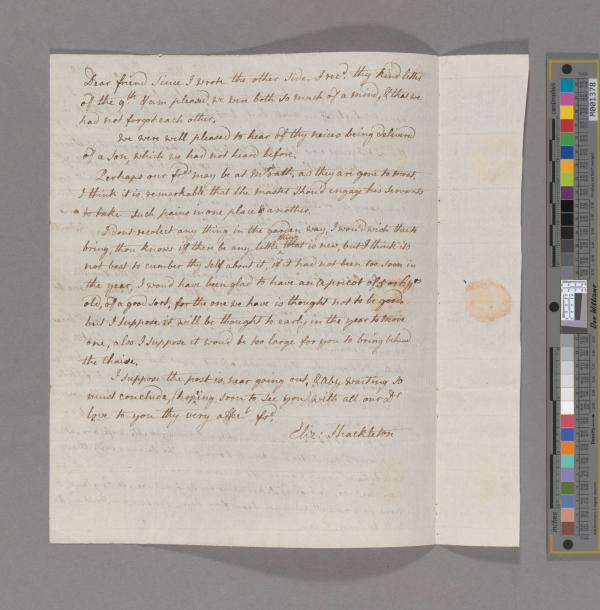 Dear friend Since I wrote the other side. I recd. thy kind letter
of the 9th. & am pleased we were both so much of a mind, & that we
had not forgot each other.
We were well pleased to hear of thy neices being delivered
of a son, which we had not heard before.
Perhaps our frds may be at as they are gone to most.
I think it is remarkable that the master shou'd engage his servants
to take such pains in one place & another.
I dont recolect any thing in the garden way, I wou'd wish thee to
bring, thou knows if there be any little thing that is new, but I think it is
not best to cumber thy self about it, if it had not been too soon in
the year, I wou'd have been glad to have an apricot of 5 or 6 yrs
old, of a good sort, for the one we have is thought not to be good
but I suppose it will be thought to early in the year to move
one, also I suppose it wou'd be too large for you to bring behind
the Chaise.
I suppose the post is near going out, & Aby waiting so
must conclude, (hoping soon to see you) with all our dr.
love to you thy very affect. frd.
Eliz: Shackleton
M001378
inches
centimeters
Don Williams